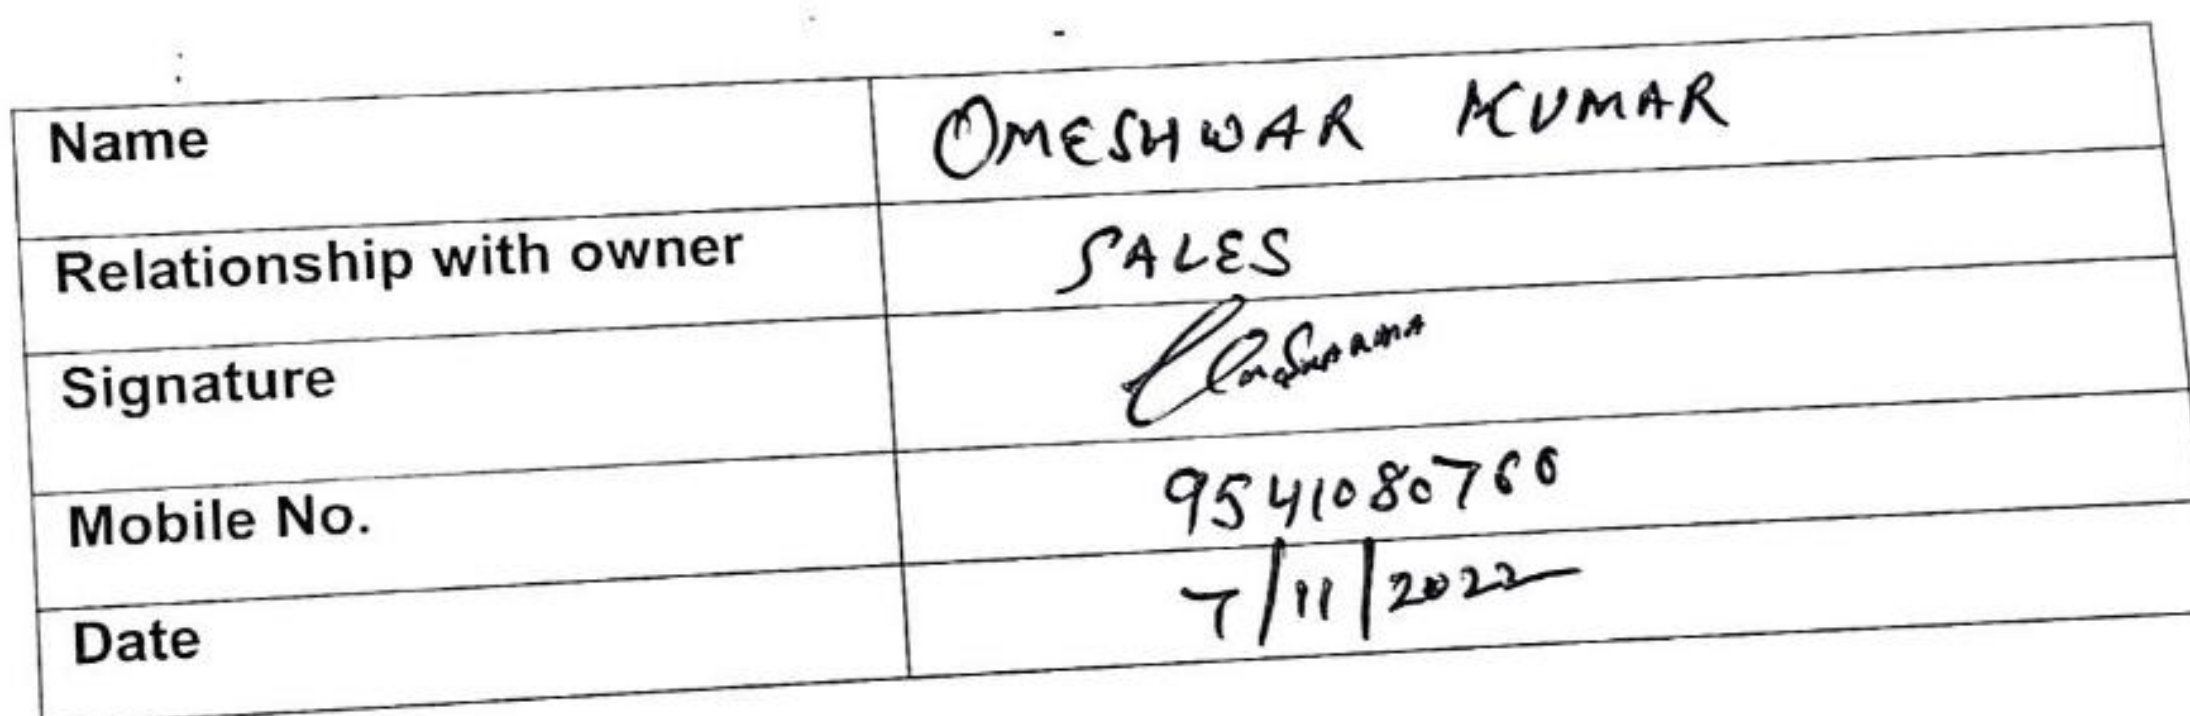 Name OMESHWAR KUMAR
Relationship with owner SALES
Signature
Mobile No. 9541080760
Date 7/11/2022